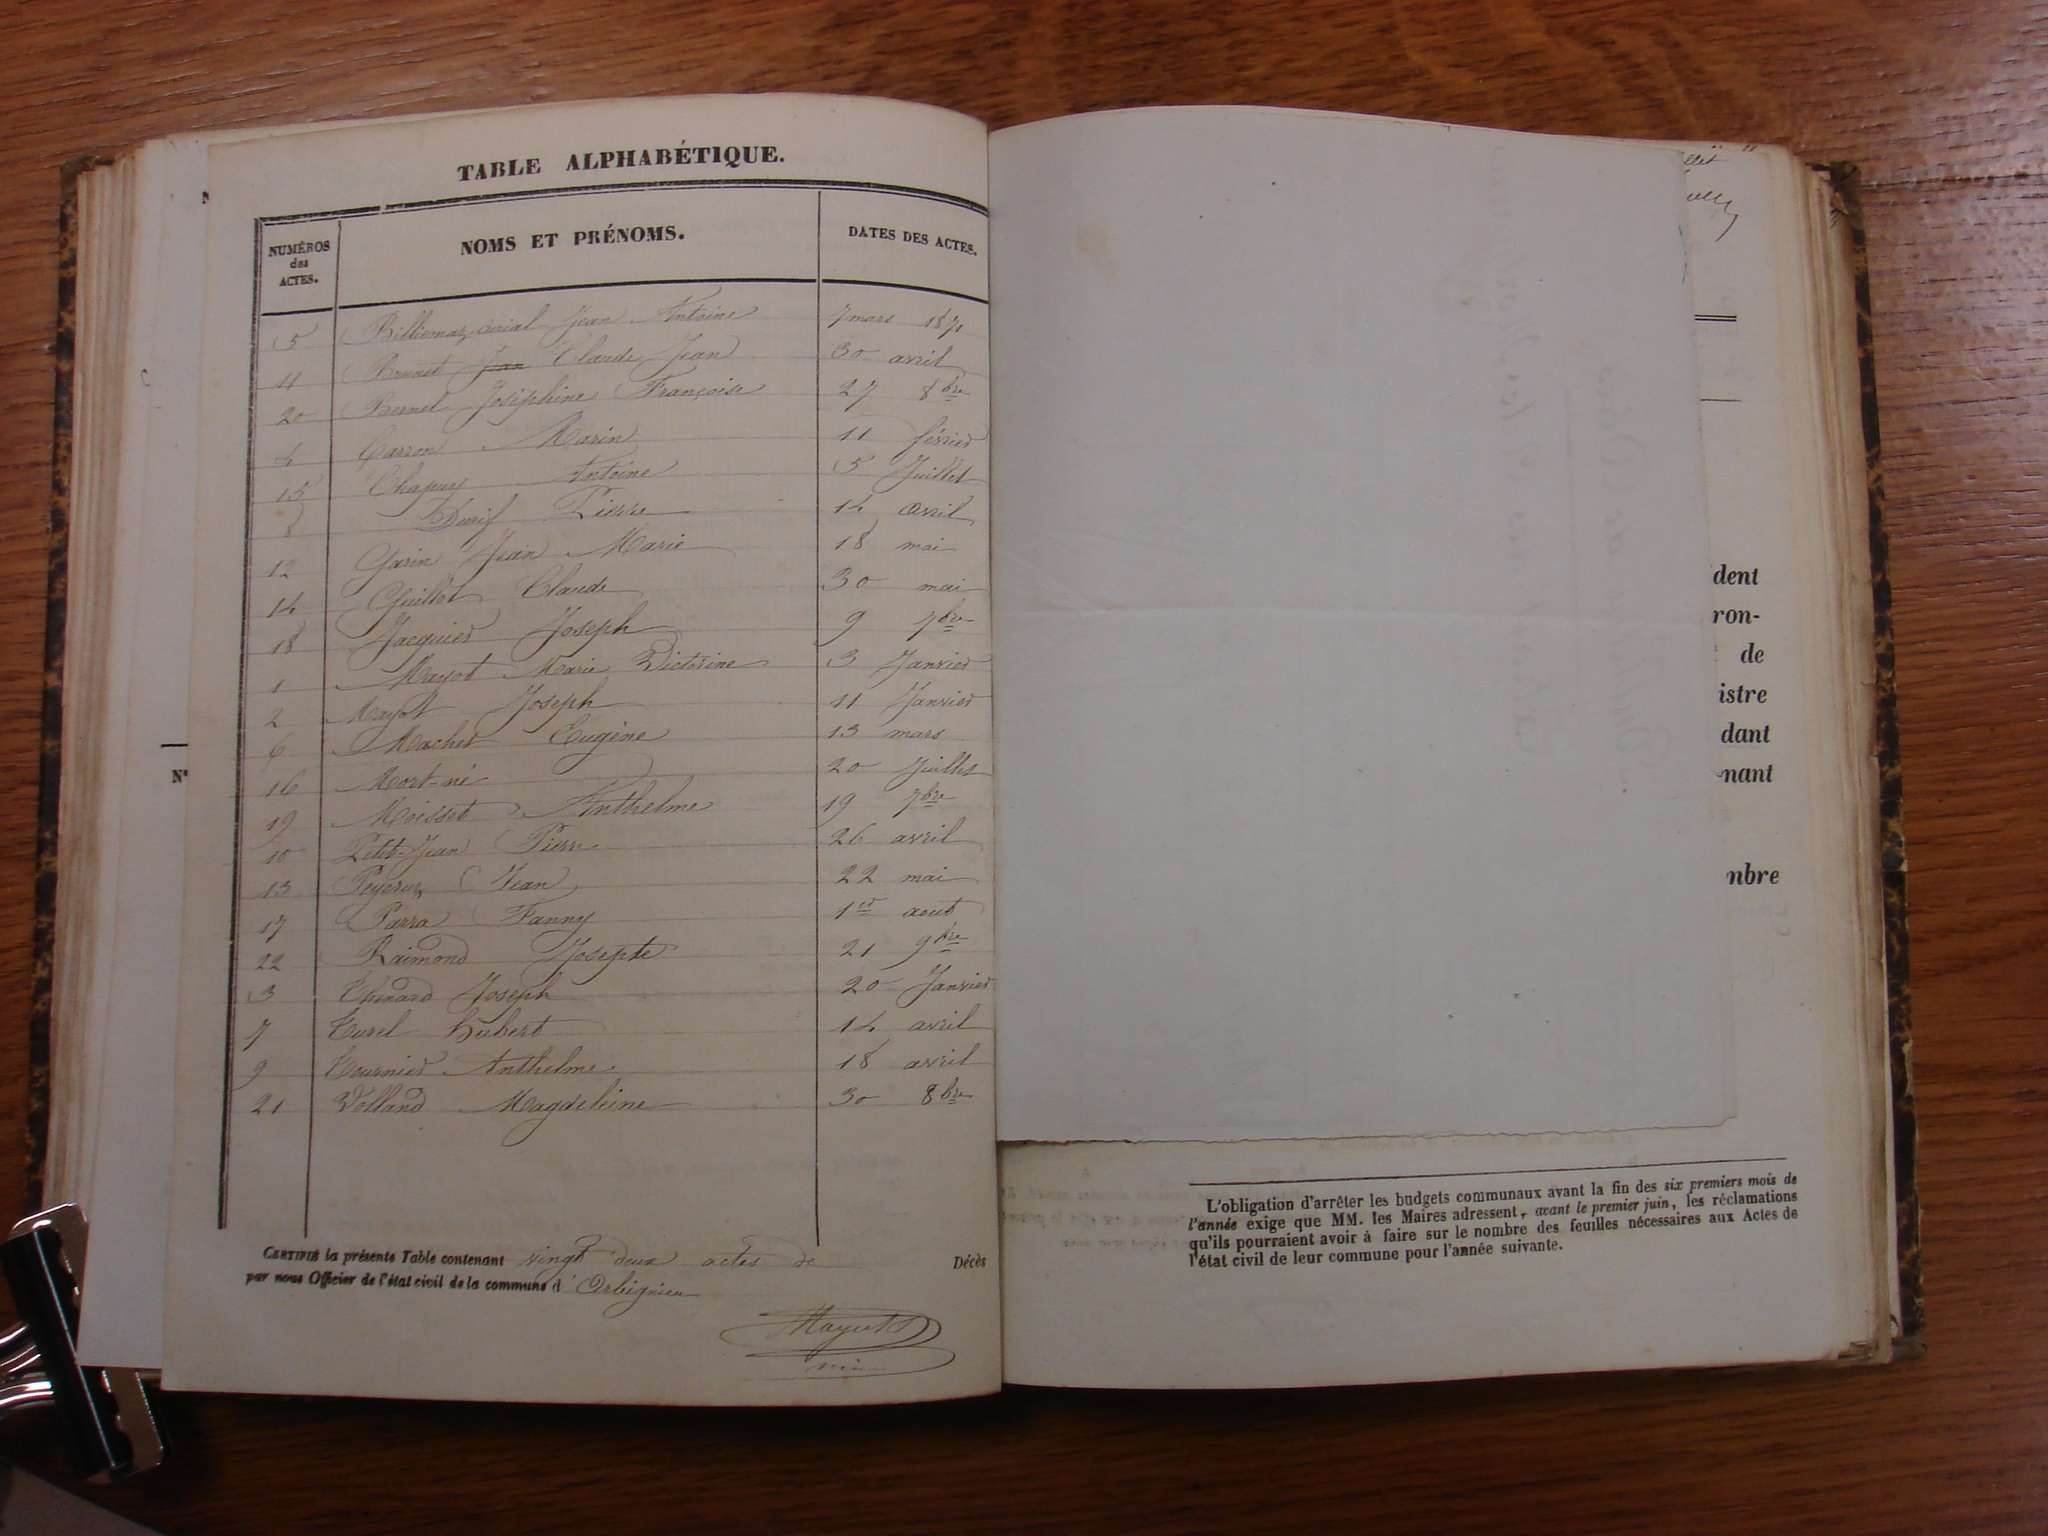 TABLE ALPHABÉTIQUE.
NUMÉROS des ACTES. NOMS ET PRÉNOMS. DATES DES ACTES.
5 Billiemaz Jean Antoine 7 mars 1871
11 Brunet Jean Claude Jean 30 avril
20 Josephine Françoise 27 8bre
4 Carron Marin 11 février
15 Chapuy Antoine 5 Juillet
8 Durif Pierre 14 avril
12 Garin Jean Marie 18 mai
14 Guillot Claude 30 mai
18 Jacquier Joseph 9 7bre
1 Mayot Marie Victorine 3 Janvier
2 Mayot Joseph 11 Janvier
6 Machet Eugène 13 mars
16 Mort-né 20 Juillet
19 Moisset Anthelme 19 7bre
10 Petit-Jean Pierre 26 avril
13 Peyeruz Jean 22 mai
17 Parra Fanny 1er aout
22 Raimond Josepte 21 9bre
3 Thénard Joseph 20 Janvier
7 Turel hubert 14 avril
9 Tournier Anthelme 18 avril
21 Volland Magdeleine 30 8bre
CERTIFIÉ la présente Table contenant vingt deux actes de Décès
par nous Officier de l'état civil de la commune d'Arbignieu
N°
dent
ron-
de
istre
dant
nant
mbre
L'obligation d'arrêter les budgets communaux avant la fin des six premiers mois de
l'année exige que MM. les Maires adressent, avant le premier juin, les réclamations
qu'ils pourraient avoir à faire sur le nombre des feuilles nécessaires aux Actes de
l'état civil de leur commune pour l'année suivante.